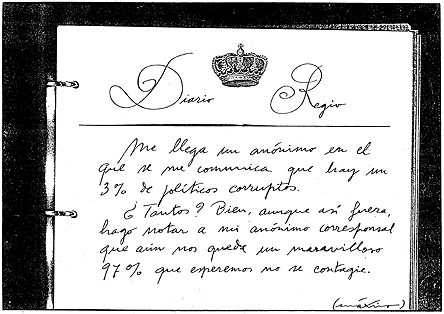 Diario Regio
Me llega un anónimo en el
que se me comunica que hay un
3% de políticos corruptos.
¿Tantos? Bien, aunque así fuera,
hago notar a mi anónimo corresponsal
que aún nos queda un maravilloso
97% que esperemos no se contagie.
(máximo)